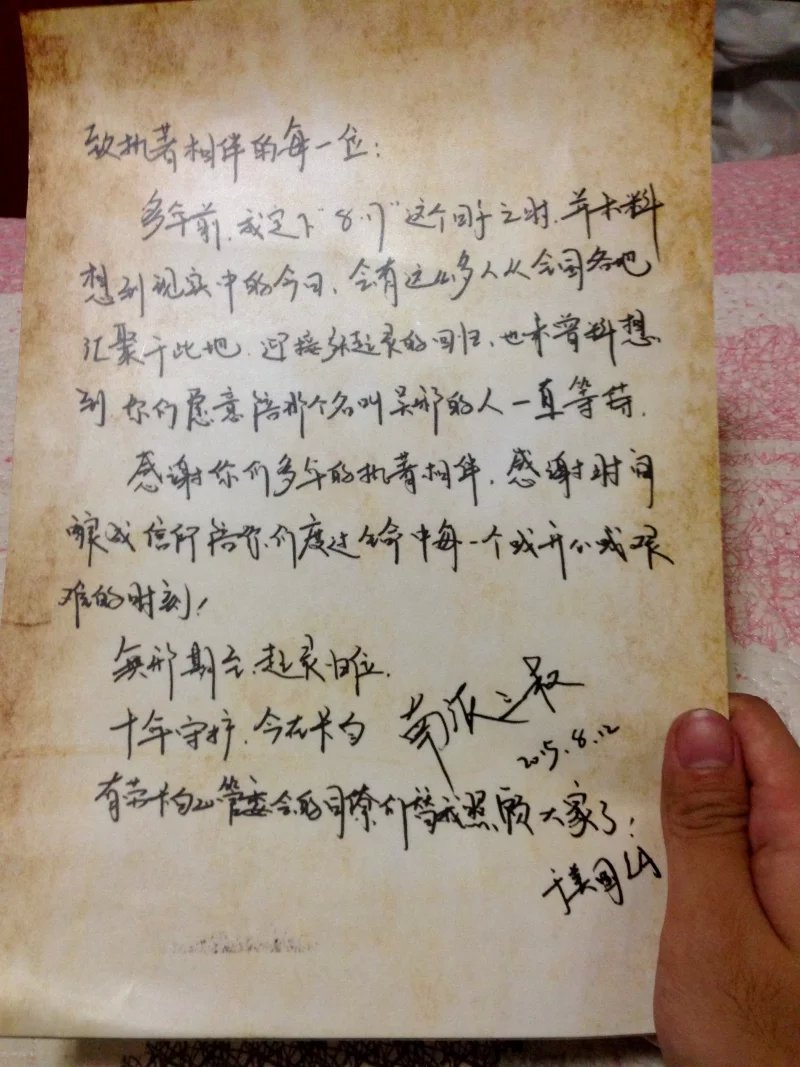 致执著相伴的每一位：
多年前，我定下“8.17”这个日子之时，并未料
想到现实中的今日，会有这么多人从全国各地
汇聚于此地，迎接张起灵的回归，也未曾料想
到你们愿意陪那个名叫吴邪的人一直等待。
感谢你们多年的执著相伴，感谢时间
酿成信仰陪你们度过生命中每一个或开心或艰
难的时刻！
無邪期至，起灵归位。
十年守护，今在长白
南派三叔
2015.8.12
有劳长白山管委会的同僚们替我照顾大家了！
于美国LA